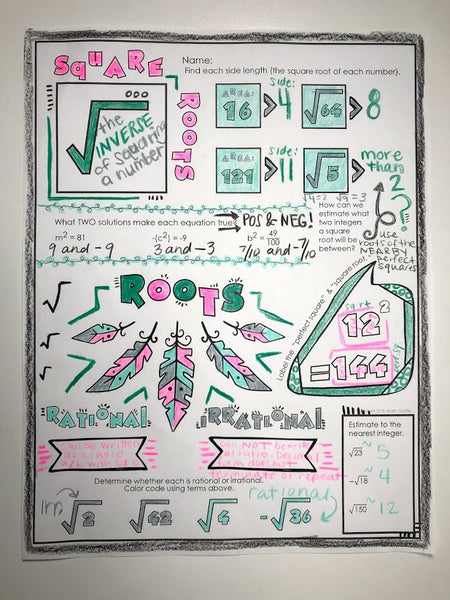 SQUARE
ROOTS
Name:
Find each side length (the square root of each number).
the
INVERSE
of squaring
a number
AREA:
16
side:
4
√64
8
AREA:
121
side:
11
√5
more
than
2
√4=2 √9=3
What TWO solutions make each equation true?
POS & NEG!
m² = 81
9 and -9
-(c²) = -9
3 and -3
b² = 49/100
7/10 and -7/10
How can we
estimate what
two integers
a square
root will be
between?
use
roots of the
NEAREST
perfect
squares
ROOTS
Label the "perfect square" & "square root."
sqrt
12²
=144
RATIONAL
IRRATIONAL
can be written
as a ratio
can NOT be written
as ratio. Decimal
form does not
terminate or repeat
Determine whether each is rational or irrational.
Color code using terms above.
irr.
rational
√2
√42
√4
-√36
Estimate to the
nearest integer.
√23 ~ 5
-√18 ~ 4
√150 ~ 12